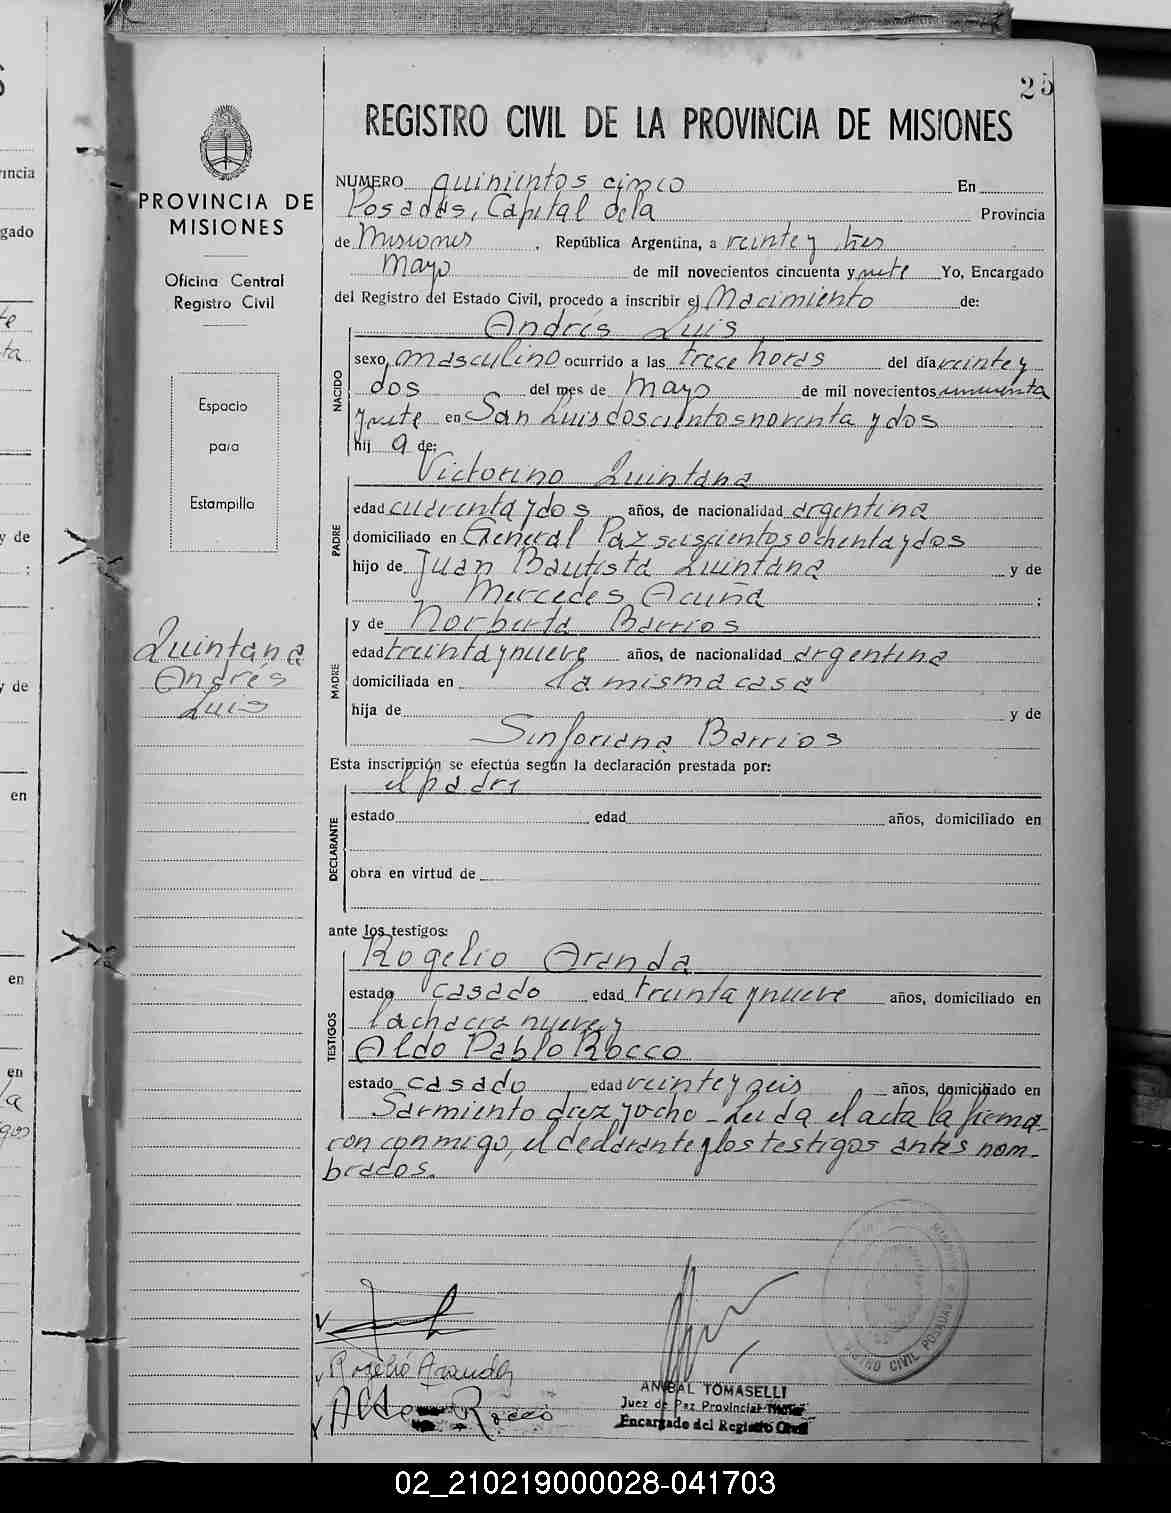 25
REGISTRO CIVIL DE LA PROVINCIA DE MISIONES
PROVINCIA DE
MISIONES
Oficina Central
Registro Civil
Espacio
para
Estampilla
Quintana
Andrés
Luis
NUMERO quinientos cinco En
Posadas, Capital dela Provincia
de Misiones. República Argentina, a veinte y tres
Mayo de mil novecientos cincuenta y siete Yo, Encargado
del Registro del Estado Civil, procedo a inscribir el Nacimiento de:
NACIDO
Andrés Luis
sexo masculino ocurrido a las trece horas del día veinte y
dos del mes de Mayo de mil novecientos cincuenta
y siete en San Luis doscientos noventa y dos
hij o de:
PADRE
Victorino Quintana
edad cuarenta y dos años, de nacionalidad argentina
domiciliado en General Paz seiscientos ochenta y dos
hijo de Juan Bautista Quintana y de
Mercedes Acuña ;
MADRE
y de Norberta Barrios
edad treinta y nueve años, de nacionalidad argentina
domiciliada en La misma casa
hija de y de
Sinforiana Barrios
Esta inscripción se efectúa según la declaración prestada por:
el padre
DECLARANTE
estado edad años, domiciliado en
obra en virtud de
ante los testigos:
TESTIGOS
Rogelio Aranda
estado casado edad treinta y nueve años, domiciliado en
la chacra nueve y
Aldo Pablo Rocco
estado casado edad veinte y seis años, domiciliado en
Sarmiento diez y ocho - Leida el acta la firma-
ron conmigo, el declarante y los testigos antes nom-
brados.
Rogelio Aranda
Aldo Rocco
ANIBAL TOMASELLI
Juez de Paz Provincial
Encargado del Registro Civil
REGISTRO CIVIL POSADAS
02_210219000028-041703